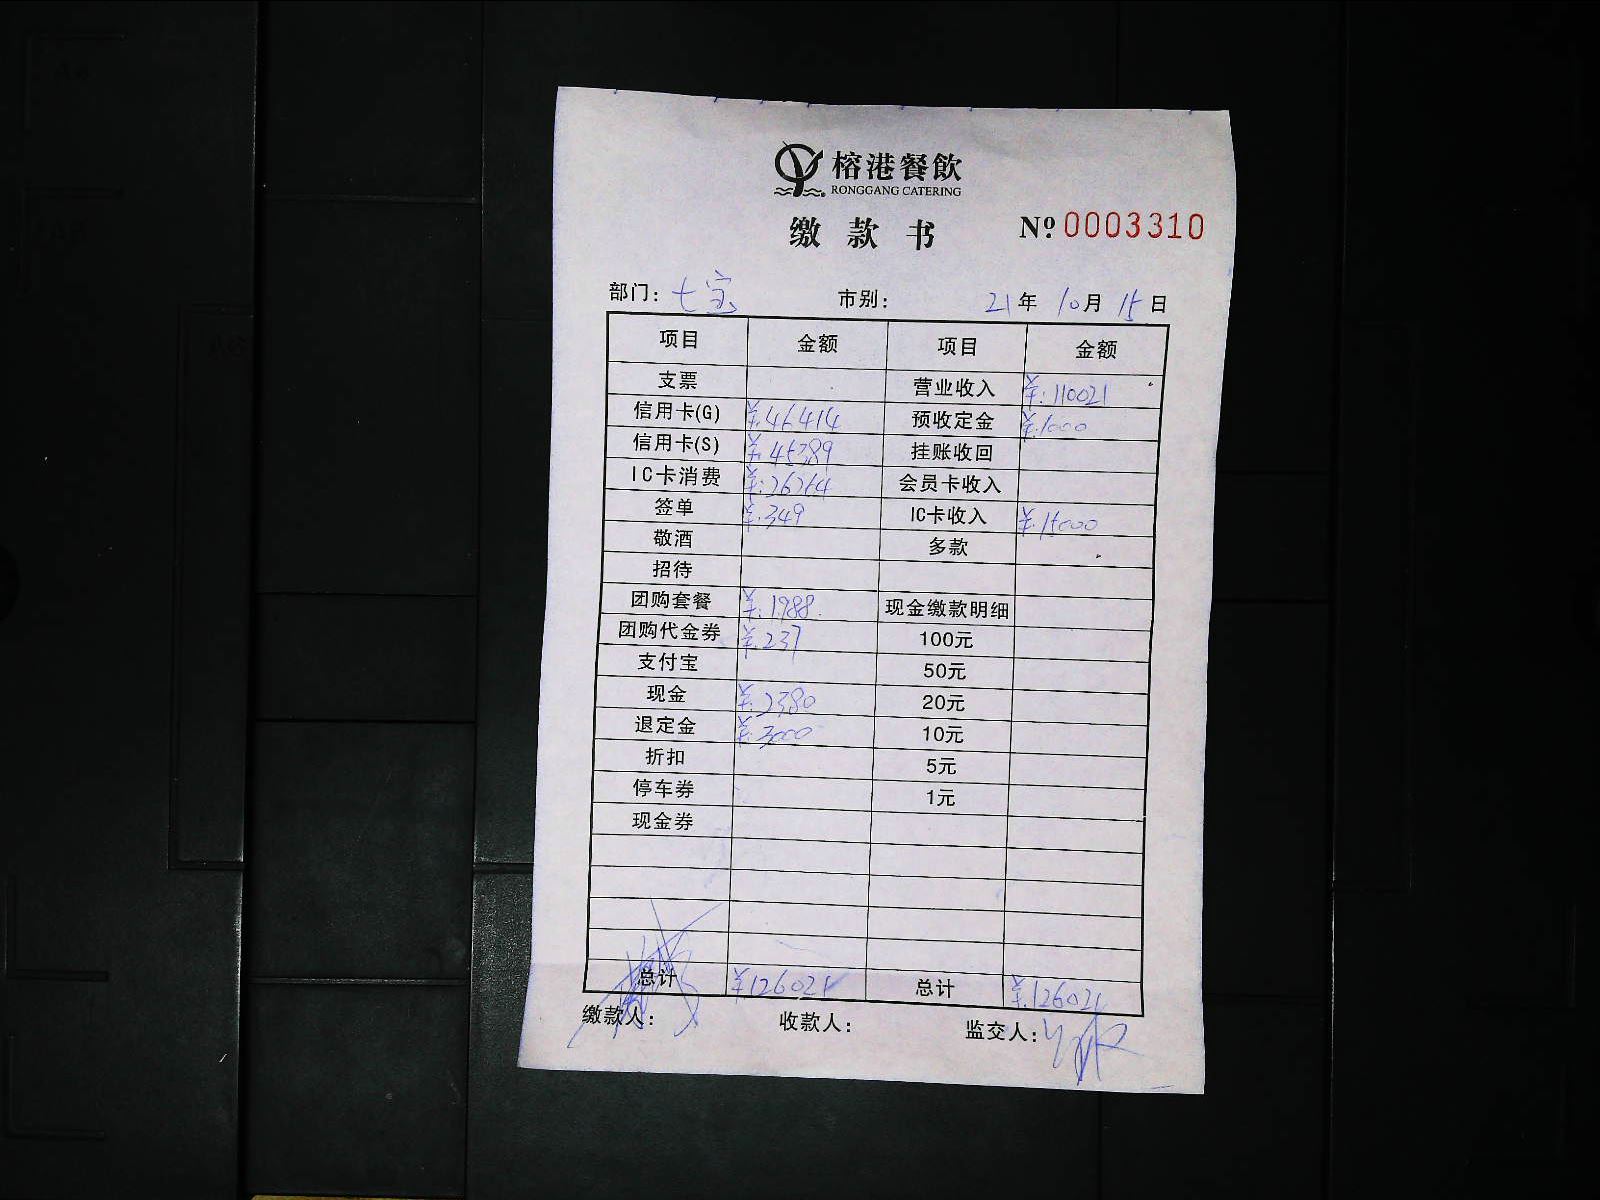 榕港餐飲
RONGGANG CATERING
缴款书 Nº 0003310
部门: 七宝 市别: 21年 10月 15日
项目 金额 项目 金额
支票 营业收入 ¥:110021
信用卡(G) ¥:46414 预收定金 ¥:1000
信用卡(S) ¥:45389 挂账收回
IC卡消费 ¥:26264 会员卡收入
签单 ¥:349 IC卡收入 ¥:15000
敬酒 多款
招待
团购套餐 ¥:1988 现金缴款明细
团购代金券 ¥:237 100元
支付宝 50元
现金 ¥:2380 20元
退定金 ¥:3000 10元
折扣 5元
停车券 1元
现金券
总计 ¥126021 总计 ¥:126021
缴款人: 收款人: 监交人: